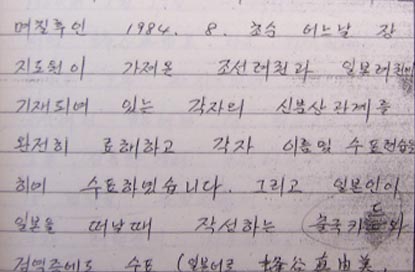 며칠후인 1984. 8. 초순 어느날 장
지도원이 가져온 조선려권과 일본려권에
기재되여 있는 각자의 신분상 관계를
완전히 료해하고 각자 이름및 수표련습을
하여 수표하였습니다. 그리고 일본인이
일본을 떠날때 작성하는 출국카드와
검역증에도 수표 (일본어로 蜂谷真由美,